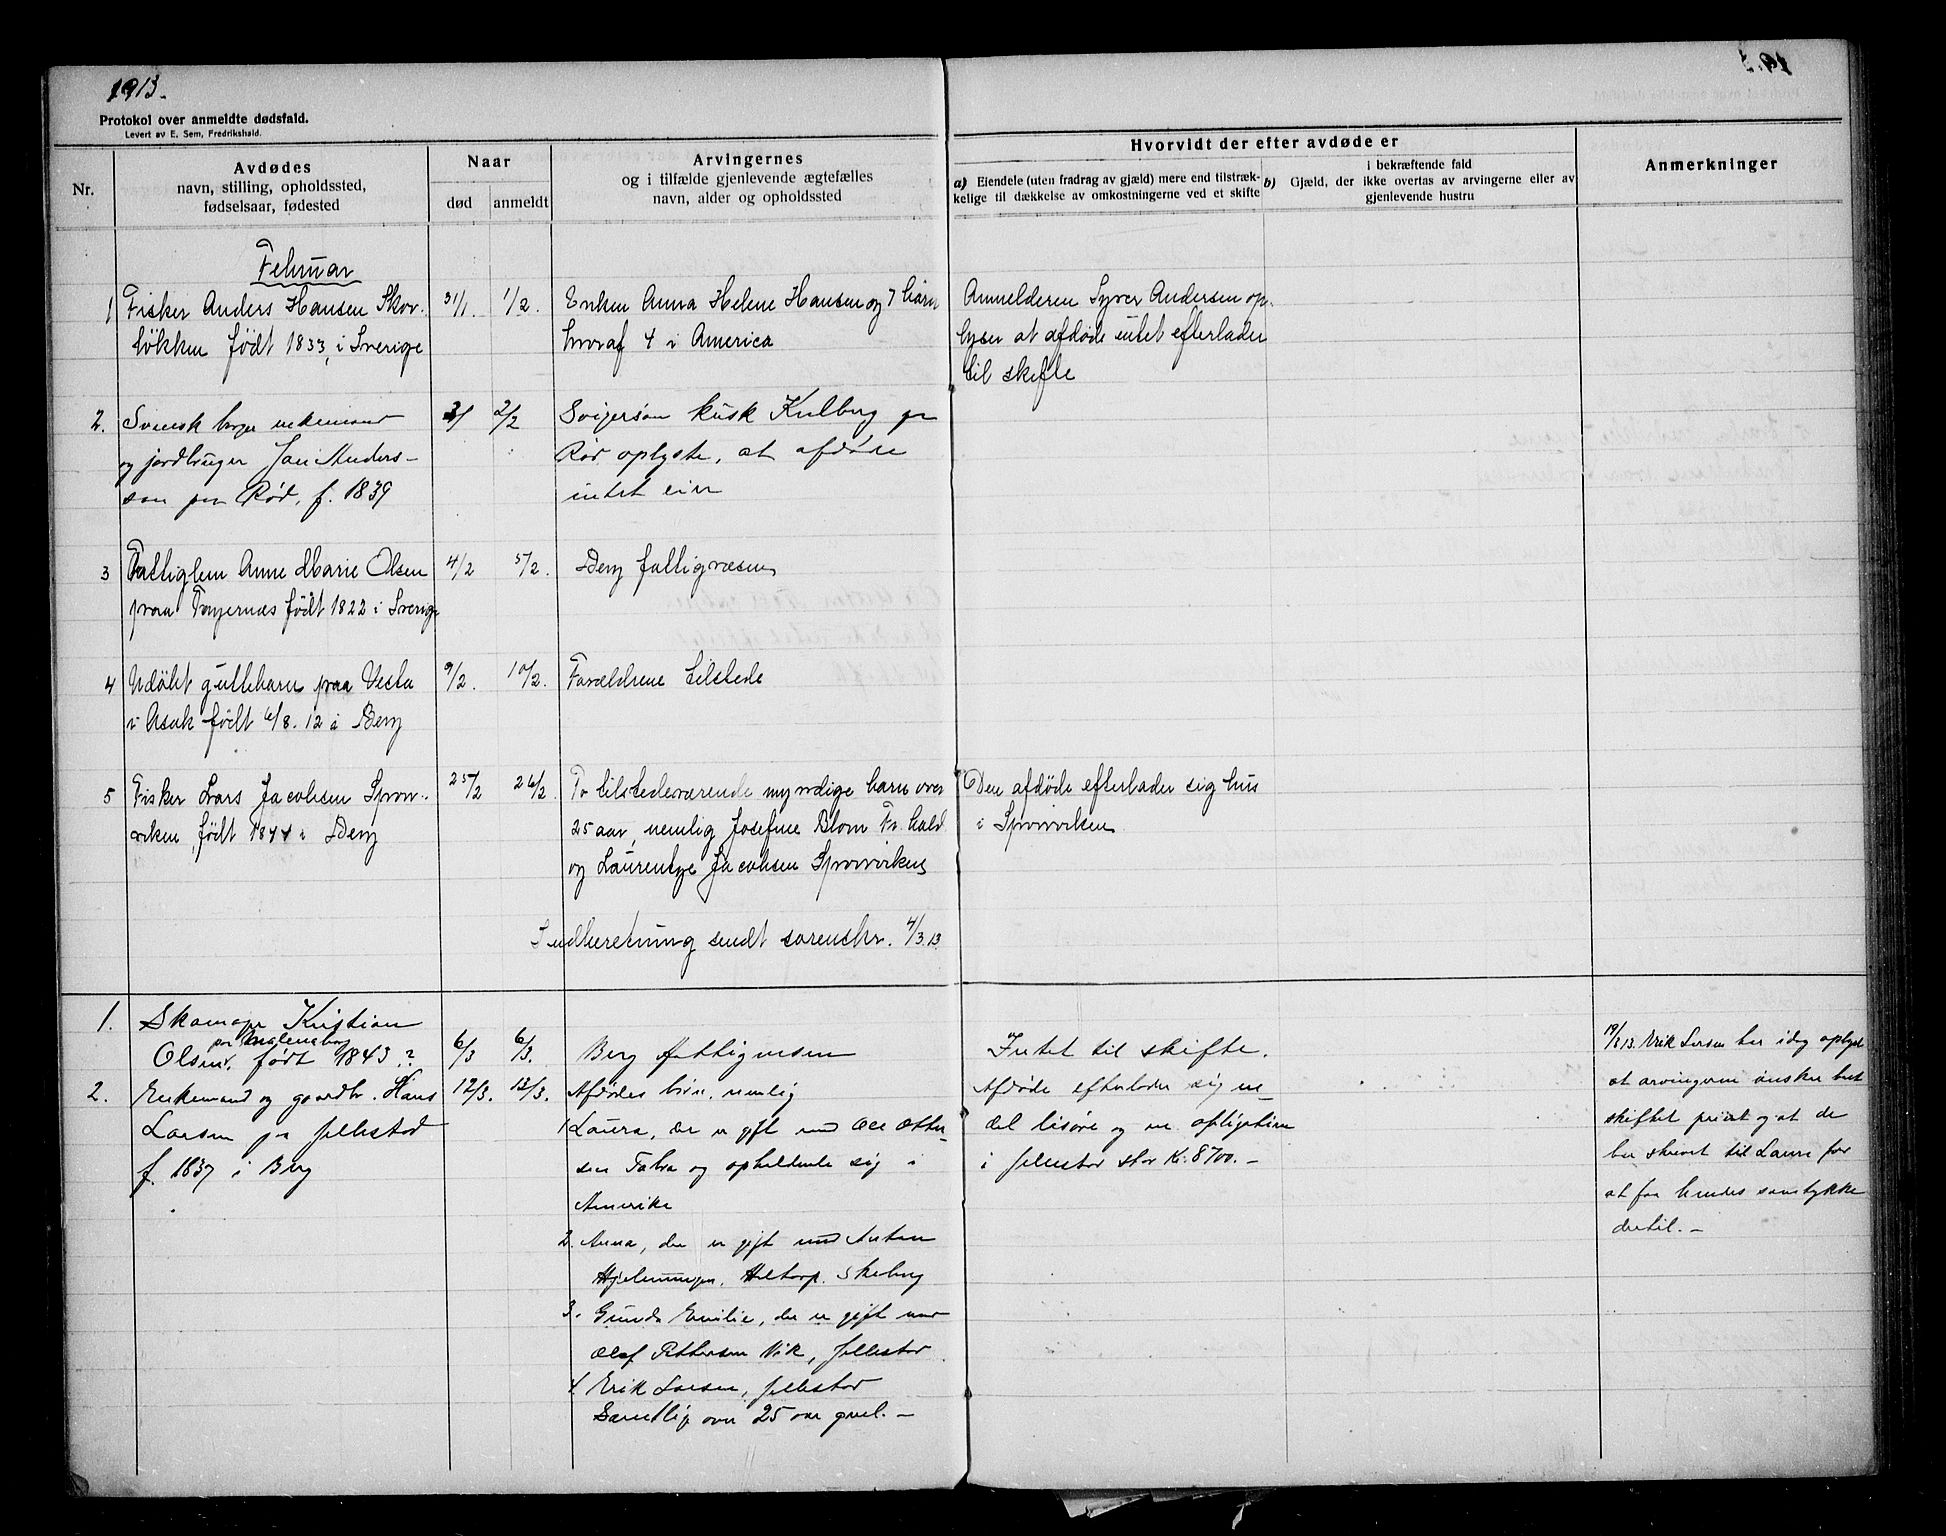 1913.
Protokol over anmeldte dødsfald.
Levert av E. Sem, Fredrikshald.
Nr.
Avdødes
navn, stilling, opholdssted,
fødselsaar, fødested
Naar
død
anmeldt
Arvingernes
og i tilfælde gjenlevende ægtefælles
navn, alder og opholdssted
Hvorvidt der efter avdøde er
a) Eiendele (uten fradrag av gjæld) mere end tilstræk-
kelige til dækkelse av omkostningerne ved et skifte
i bekræftende fald
b) Gjæld, der ikke overtas av arvingerne eller av
gjenlevende hustru
Anmerkninger
Februar
1 Fisker Anders Hansen Skov-
løkken født 1833, i Sverige
31/1. 1/2.
Enken Anna Helene Hansen og 7 barn
hvoraf 4 i America
Anmelderen Syver Andersen op-
lyser at afdøde intet efterlader
til skifte
2. Svensk borger enkemand
og jordbruger Jan Anders-
son paa Rød, f. 1839
2/2
Svigersøn kusk Kulberg paa
Rød oplyste, at afdøde
intet eier
3 Fattiglem Anne Marie Olsen
paa Torpernæs født 1822 i Sverige
4/2 5/2.
Berg fattigvæsen
4 Udøbt guttebarn paa Vesta
i Asak født 6/8. 12 i Berg
9/2. 10/2.
Forældrene tilstede
5 Fisker Lars Jacobsen Sponvi-
viken, født 1844 i Berg
25/2 26/2
To tilstedeværende myndige barn over
25 aar, nemlig Josefine Blom Fr.hald
og Laurentze Jacobsen Sponviken
Den afdøde efterlader sig hus
i Sponviken
Indberetning sendt sorenskr. 4/3.13
1. Skomager Kristian
paa Malenaborg
Olsen, født 1843?
6/3 6/3.
Berg fattigvesen
Intet til skifte.
2. Enkemand og gaardbr. Hans
Larsen paa Jellestad
f. 1837 i Berg
12/3. 13/3.
Afdødes børn, nemlig
1 Laura, der er gift med Ole Otter-
sen Tabra og opholdende sig i
Amerika
2. Anna, der er gift med Anton
Hjelmungen, Holtorp. Skeberg
3. Gunda Emilie, der er gift med
Olaf Pettersen Vik, Jellestad
4. Erik Larsen, Jellestad
Samtlig over 25 aar gml. –
Afdøde efterlader sig en
del løsøre og en obligation
i Jellestad stor Kr. 8700. –
19/3 13. Erik Larsen har idag oplyst
at arvingerne ønsker boet
skiftet privat og at de
har skrevet til Laura for
at faa hendes samtykke
dertil. –